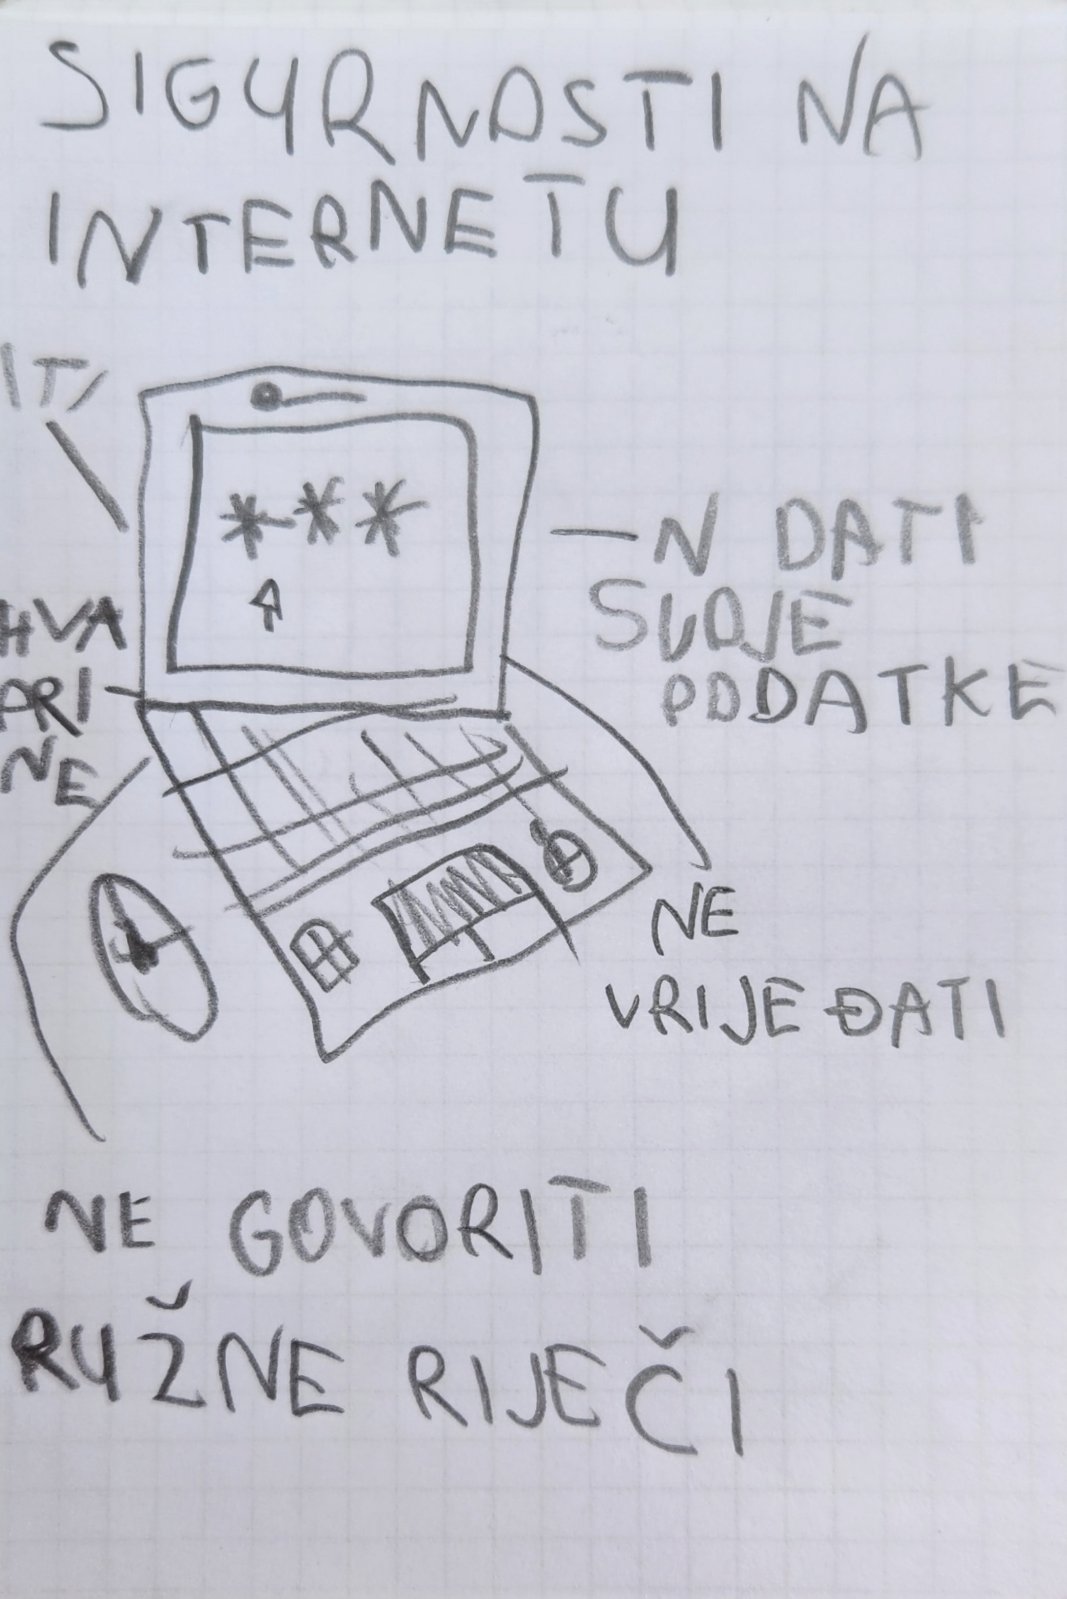 SIGURNOSTI NA
INTERNETU
ITI
N DATI
SVOJE
PODATKE
HVA
PRI
NE
NE
VRIJEĐATI
NE GOVORITI
RUŽNE RIJEČI